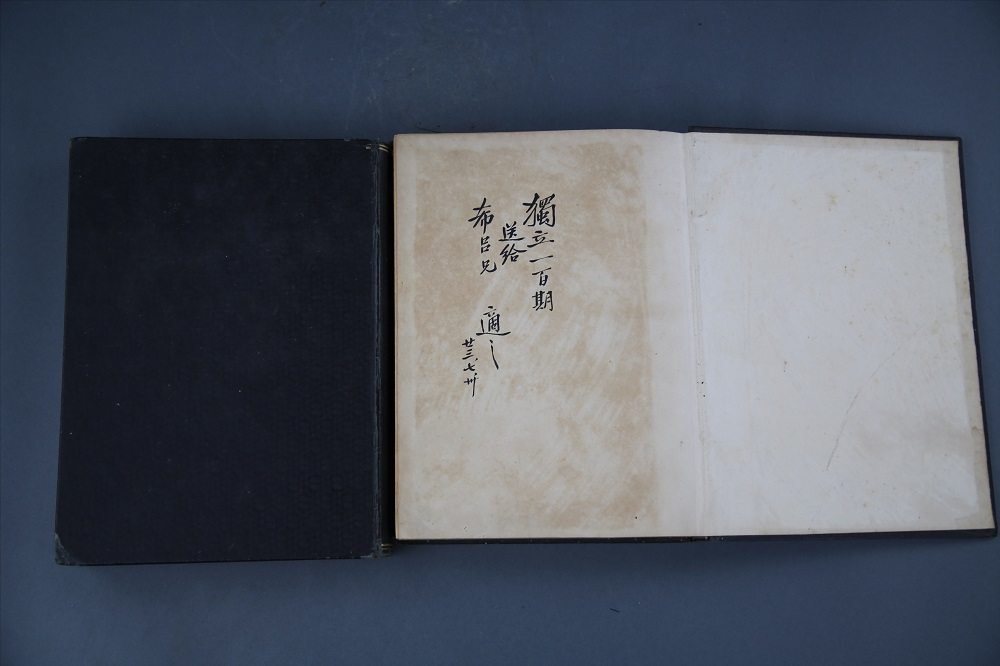 獨立一百期
送給
希呂兄
適之
廿三、七、卅